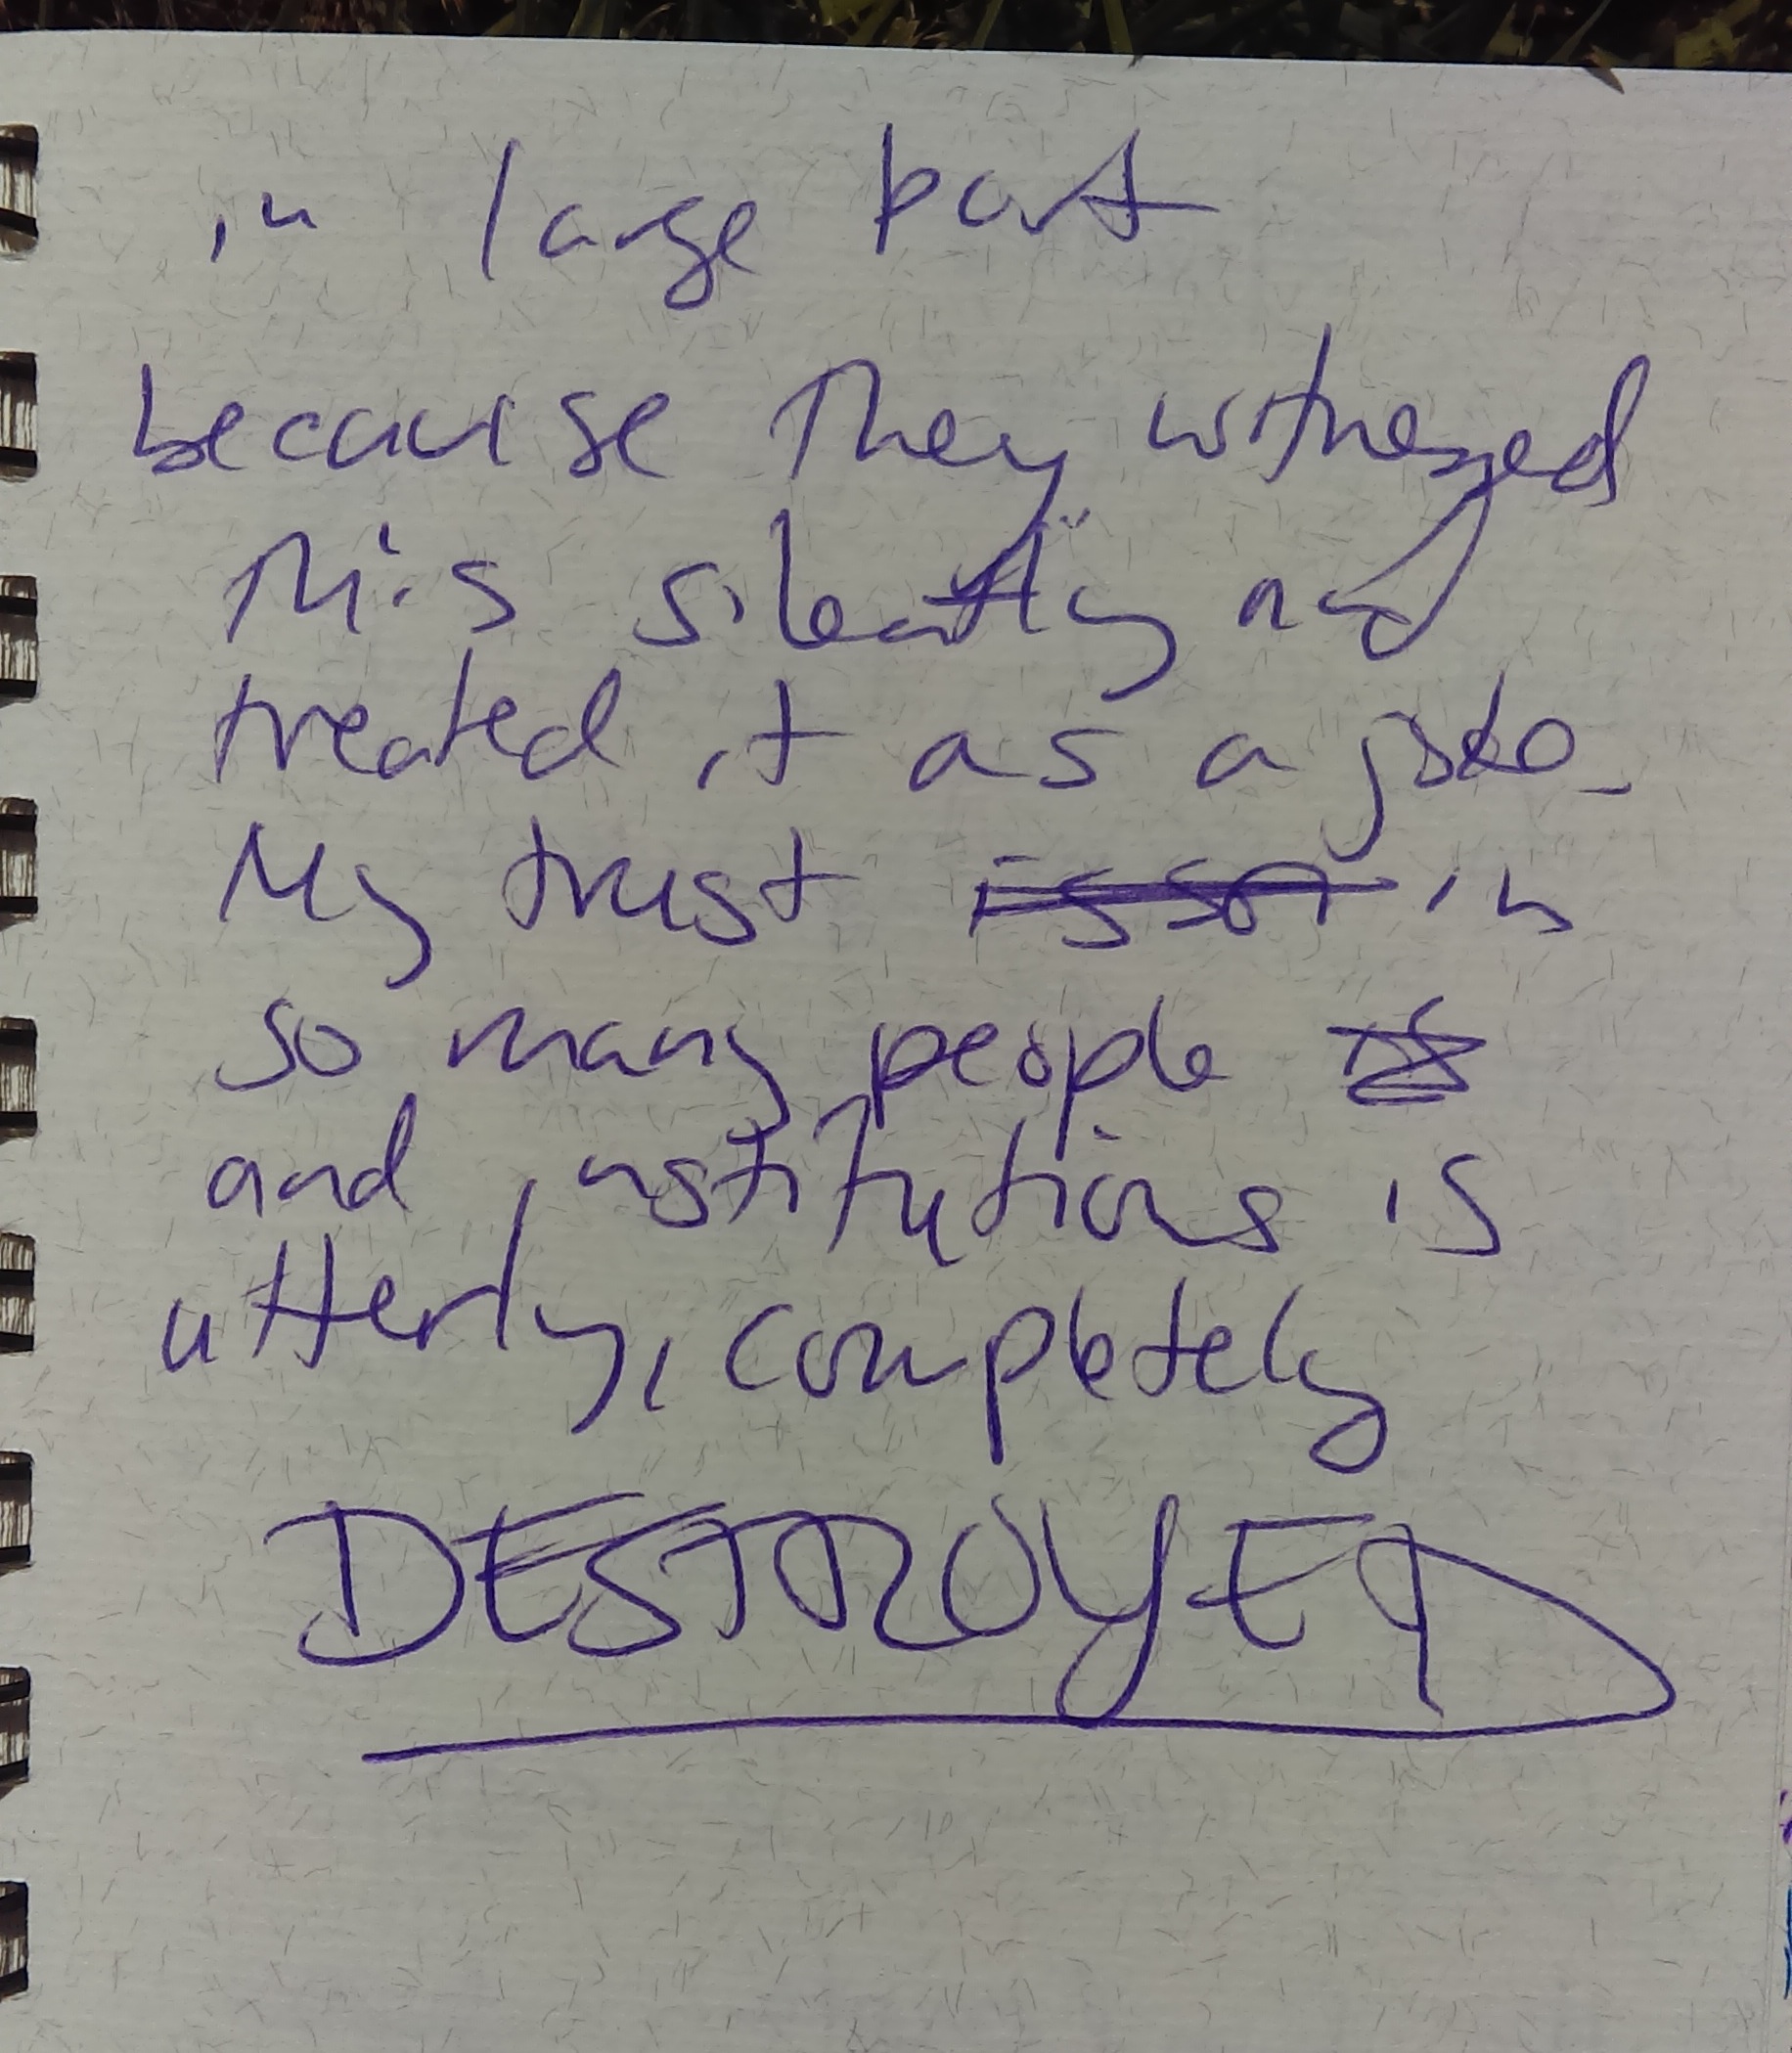 in large part
because they witnessed
this silently and
treated it as a joke.
My trust in
so many people
and institutions is
utterly, completely
DESTROYED